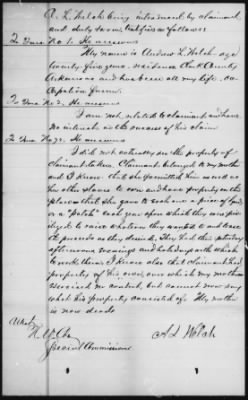 A. L. Welch being introduced by claimant
and duly sworn, testifies as follows
To Inter. No. 1. He answers
My name is Andrew L. Welch age
twenty five years. residence Clark County
Arkansas and have been all my life. oc-
cupation farmer.
To Inter No 2. He answers
I am not related to claimant and have
no interest in the success of his claim
He answers
I did not see the property of
claimant taken. Claimant belonged to my mother
and I know that she permitted him as well as
her other slaves to own and have property on the
place that she gave to each one a piece of land
or a "patch" each year upon which they were priv-
iledged to raise whatever they wanted to and to use
the proceeds as they desired. They had the Saturday
afternoons evenings and holidays on which
to work them. I know also that claimant had
property of his own, over which my mother
exercised no control, but cannot now say
what his property consisted of. My mother
is now dead.
Attest
A L Welch
Special Commissioner